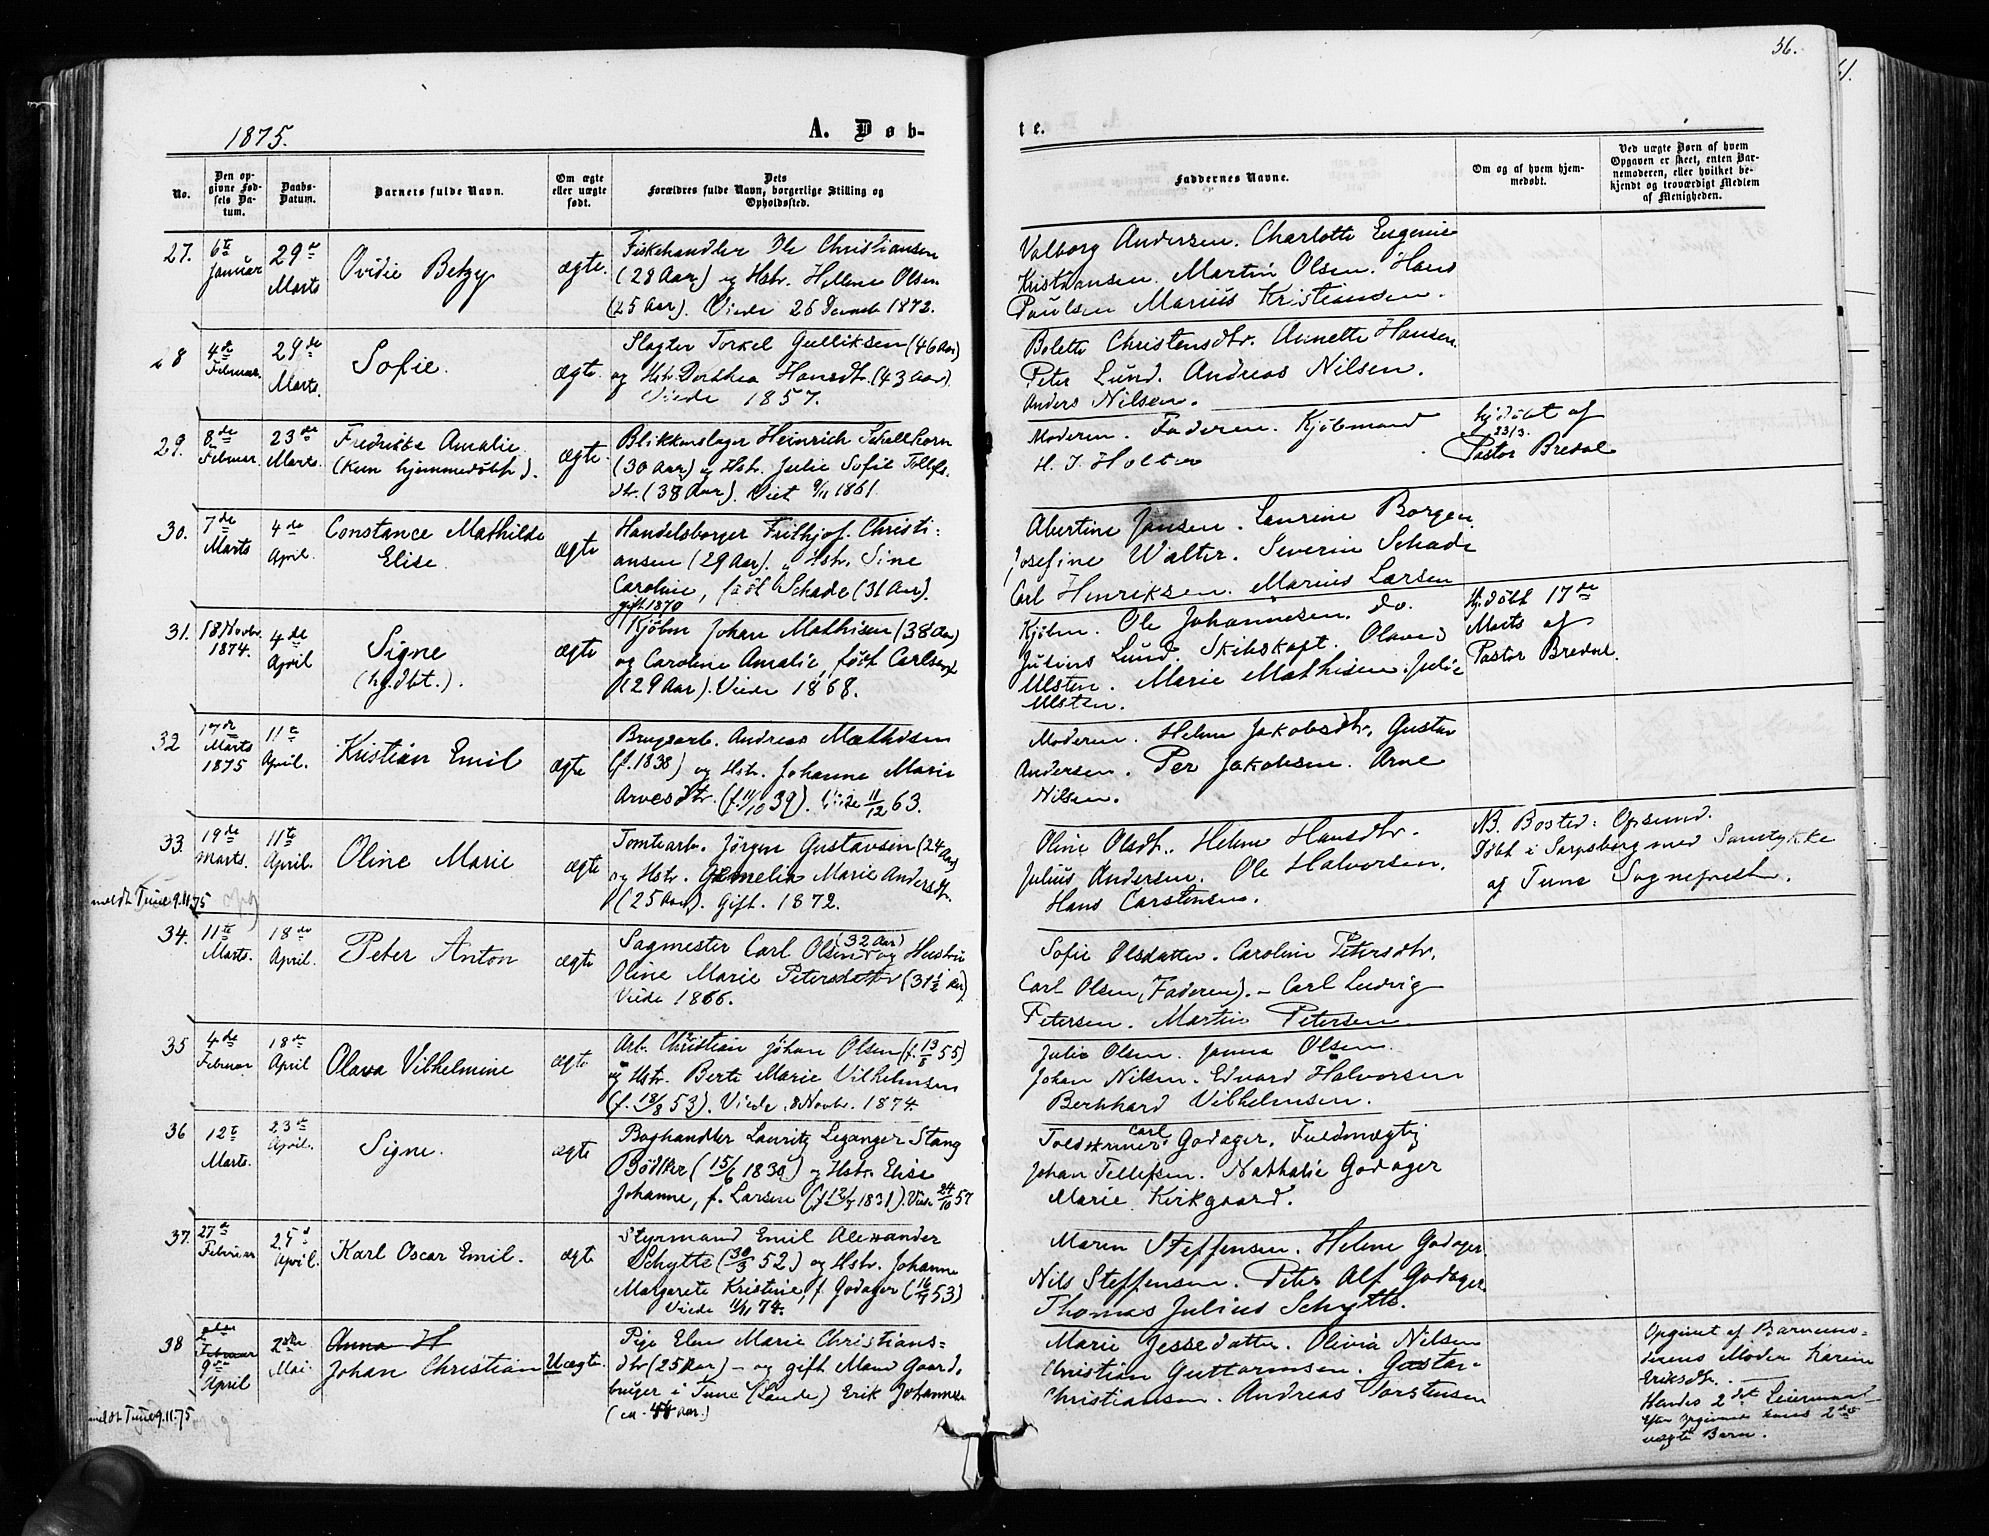 56.
1875.
A. Døb-
te.
No.
Den op-
givne Fød-
sels Da-
tum.
Daabs-
Datum.
Barnets fulde Navn.
Om ægte
eller uægte
født.
Dets
Forældres fulde Navn, borgerlige Stilling og
Opholdssted.
Faddernes Navne.
Om og af hvem hjem-
medøbt.
Ved uægte Børn af hvem
Opgaven er skeet, enten Bar-
nemoderen, eller hvilket be-
kjendt og troværdigt Medlem
af Menigheden.
27.
6te
Januar
29de
Marts
Ovidie Betzy
ægte.
Fiskehandler Ole Christiansen
(28 Aar) og Hstr. Hellene Olsen
(25 Aar). Viede 26 Decemb 1872.
Valborg Andersen. Charlotte Eugenie
Kristiansen. Martin Olsen. Hans
Paulsen Marius Kristiansen.
28
4de
Februar.
29de
Marts.
Sofie.
ægte.
Slagter Torkel Gulliksen (46 Aar)
og Hstr. Dorthea Hansdtr. (43 Aar).
Viede 1857.
Bolette Christensdtr. Annette Hansen.
Peter Lund. Andreas Nilsen.
Anders Nilsen.
29.
8de
Februar.
23de
Marts.
Fredrikke Amalie
(Kun hjemmedøbt).
ægte.
Blikkenslager Heinrich Schellhorn
(30 Aar) og Hstr. Julie Sofie Tollefs
dtr. (38 Aar). Viet 9/11 1861.
Moderen. Faderen. Kjøbmand
H. J. Holter
hjdøbt af
23/3.
Pastor Bredal
30.
7de
Marts
4de
April.
Constance Mathilde
Elise.
ægte
Handelsborger Frithjof Christi-
ansen (29 Aar). og Hstr. Sine
Caroline, født Schade (31 Aar).
gift 1870
Abertine Jansen. Laurine Borgen.
Josefine Walter. Severin Schade
Carl Henriksen. Marius Larsen
31.
18 Novbr.
1874.
4de
April
Signe
(hj.dbt.).
ægte
Kjøbm Johan Mathisen (38 Aar)
og Caroline Amalie, født Carlsen
(29 Aar). Viede 1868.
Kjøbm. Ole Johannesen. do.
Julius Lund. Skibskapt. Olaves
Ulsten. Marie Mathisen. Julie
Ulsten.
Hj.døbt 17de
Marts af
Pastor Bredal.
32
17de
Marts
1875
11te
April.
Kristian Emil
ægte
Brugsarb. Andreas Mathisen
(f. 1838) og Hstr. Johanne Marie
Arvesdtr. (f. 11/10 39). Viede 11/12 63.
Moderen. Helene Jakobsdtr. Gustav
Andersen. Per Jakobsen. Arne
Nilsen.
33.
19de
Marts.
11te
April.
Oline Marie
ægte
Tomtearb. Jørgen Gustavsen (24 Aar)
og Hstr. Marie Andersdtr.
(25 Aar). Gift. 1872.
Oline Olsdtr. Helene Hansdtr.
Julius Andersen. Ole Halvorsen.
Hans Carstensen.
NB. Bosted: Opsund.
Døbt i Sarpsborg med Samtykke
af Tune Sognepresten.
meldt Tune 9.11.75
34.
11te
Marts.
18de
April.
Peter Anton
ægte
Sagmester Carl Olsen (32 Aar) og Hustru
Oline Marie Petersdatter (31 1/2 Aar)
Viede 1866.
Sofie Olsdatter. Caroline Petersdtr.
Carl Olsen, (Faderen). - Carl Ludvig
Petersen. Martin Petersen.
35
4de
Februar
18de
April
Olava Vilhelmine
ægte
Arb. Christian Johan Olsen (f. 13/8 55)
og Hstr. Berte Marie Vilhelmsen
(f. 18/8 53). Viede 8 Novbr. 1874.
Julie Olsen. Janna Olsen.
Johan Nilsen. Edvard Halvorsen
Bernhard Vilhelmsen.
36
12te
Marts.
23de
April.
Signe.
ægte
Boghandler Lauritz Leganger Stang
Bødtker (15/6 1830) og Hstr. Elise
Johanne, f. Larsen (f. 1831). Viet 24/10 57
Carl Godager. Fuldmægtig
Johan Tellefsen. Nathalie Godager
Marie Kirkgaard.
37.
27de
Februar
25d
April.
Karl Oscar Emil.
ægte
Styrmand Emil Alexander
Schytte (30/3 52) og Hstr. Johanne
Margarete Kristine, f. Godager (16/7 53)
Viede 74.
Maren Steffensen. Helene Godager.
Nils Steffensen. Peter Alf Godager
Thomas Julius Schytte.
38
Februar
9de
April
2den
Mai.
Anna H
Johan Christian
Uægte.
Pige Elen Marie Christians-
dtr (25 Aar) - og gift Mand Gaard-
bruger i Tune (Lande) Erik Johannsen
(ca. 44 Aar.)
Marie Jessedatter. Olivia Nilsen
Christian Guttormsen. Gustav
Christiansen. Andreas Torstensen
Opgivet af Barnemo-
derens Moder Karine
Eriksdtr.
Hendes 2det Leiermaal
Efter Opgivende hans 2det
uægte Barn.
meldt Tune 9.11.75